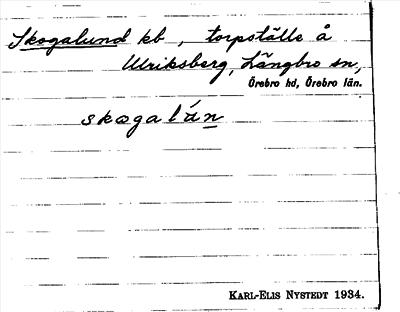 Skogalund kb, torpställe å
Ulriksberg, Längbro sn,
Örebro hd, Örebro län.
skogalún
KARL-ELIS NYSTEDT 1934.